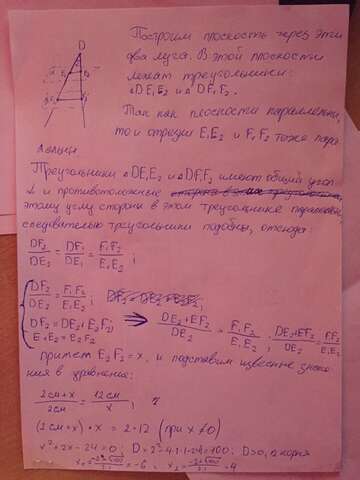 D
Построим плоскость через эти
два луча. В этой плоскости
лежат треугольники:
△DE₁E₂ и △DF₁F₂.
Так как плоскости параллельны,
то и отрезки E₁E₂ и F₁F₂ тоже пара
лельны
Треугольники △DE₁E₂ и △DF₁F₂ имеют общий угол
и противоположные
этому углу стороны в этом треугольнике параллельны,
следовательно треугольники подобны, отсюда:
DF₂/DE₂ = DF₁/DE₁ = F₁F₂/E₁E₂ ;
DF₂/DE₂ = F₁F₂/E₁E₂ ;
DF₂ = DE₂ + E₂F₂;
⇒ DE₂+EF₂/DE₂ = F₁F₂/E₁E₂ ;
примем E₂F₂ = x, и подставим известные значе
ния в уравнение:
2см+x/2см = 12см/x ;
(2см+x) · x = 2·12 (при x≠0)
x²+2x-24=0; D=2²-4·1·(-24)=100; D>0, 2 корня
= -6 ; x₂ = = 4